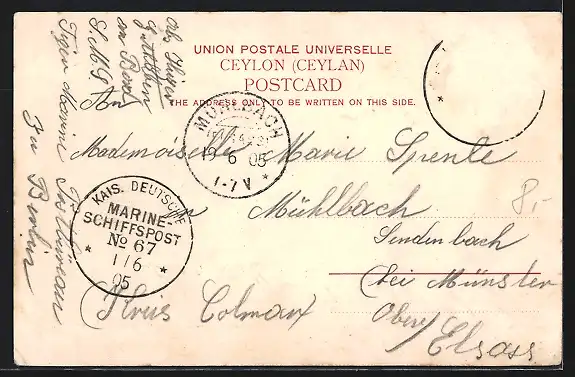 UNION POSTALE UNIVERSELLE
CEYLON (CEYLAN)
POSTCARD
THE ADDRESS ONLY TO BE WRITTEN ON THIS SIDE.
An
Mademoiselle Marie Spenle
in Mühlbach
bei Münster
(Kreis Colmar)
Ober/ Elsass
8,-
an Bord
S.M.S.
Marine
In Berlin
MÜHLBACH
19 6 05
1-7 V
KAIS. DEUTSCHE
MARINE-
SCHIFFSPOST
No 67
1/6
05